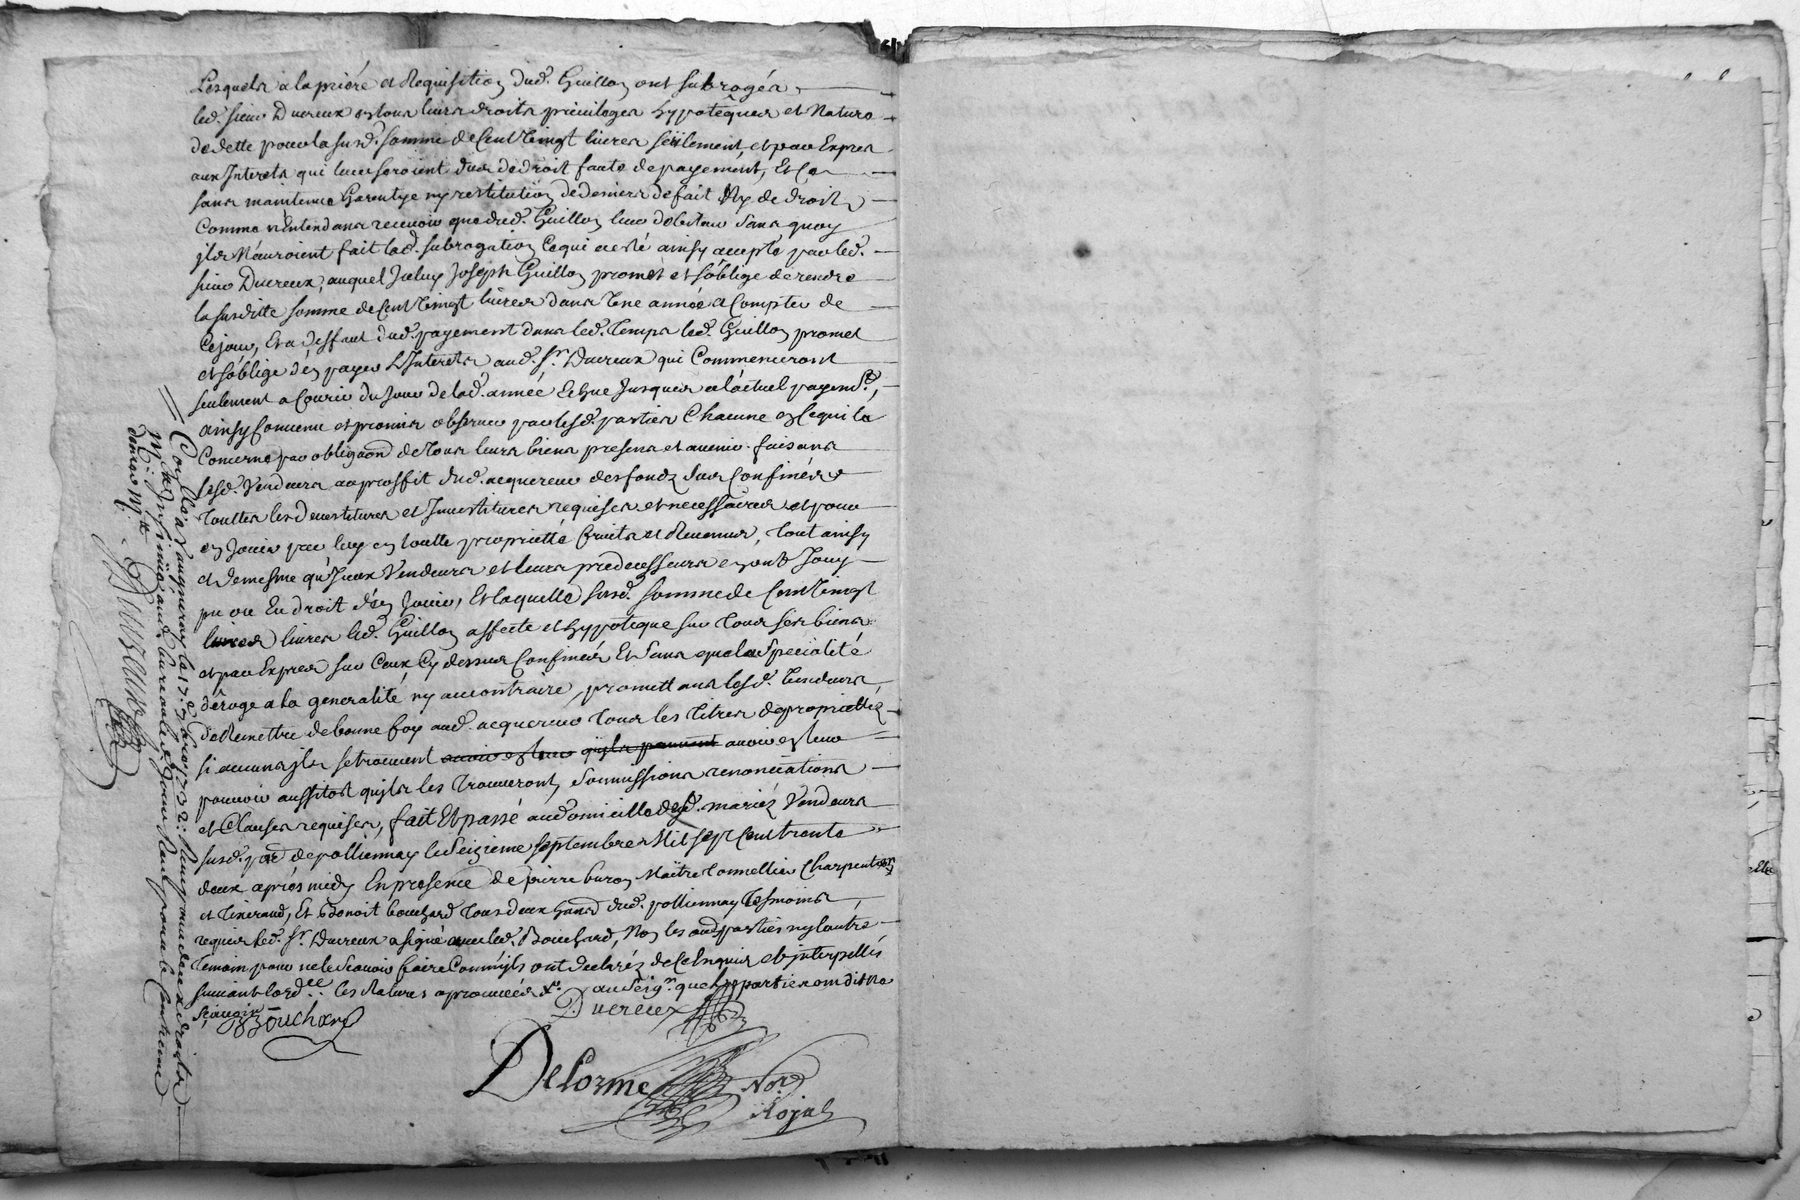 Lesquels a la priére et Requisition dud. Guillon ont subrogés
led. sieur Ducreux en tous leurs droits privileges hypotêques et Nature
de dette pour la susd. somme de Cent Vingt livres seülement, et par Expres
aux Interets qui leur seroient dus de droit faute de payement, Et Ce
sans maintenue Garentye ny restitution de deniers de fait Ny de droit,
Comme n'entendans recevoir que dud. Guillon leur debiteur sans quoy
jls N'auroient fait lad. subrogation Ce qui a esté ainsy accepté par led.
sieur Ducreux, auquel Jceluy Joseph Guillon promet et s'oblige de rendre
la susditte somme de Cent Vingt livres dans Vne année a Compter de
Ce jour, Et a deffaut dud. payement dans led. Temps led. Guillon promet
et s'oblige d'en payer L'Interets aud. Sr. Ducreux qui Commenceront
seulement a Courir du Jour de lad. année Echue Jusques a l'actuel payemt.,
ainsy Convenu et promis observer par lesd. parties Chacune en Ce qui la
Concerne par obligaon. de Tous leurs biens presens et avenir faisans
lesd. Vendeurs au proffit dud. acquereur des fonds sus Confinés
Touttes les devestitures et Investitures requises et necessaires et pour
en Jouir par luy en toutte proprietté fruits et Revenus, tout ainsy
et de mesme qu'Jceux Vendeurs et leurs predecesseurs en ont Jouy
pu ou Eu droit d'en Jouir, Et laquelle susd. somme de Cent Vingt
livres livres led. Guillon affecte et hypoteque sur Tous ses biens
et par Expres sur Ceux Cy dessus Confinés Et sans que la Specialité
déroge a la generalité ny au contraire, promettans lesd. Vendeurs
de Remettre de bonne foy aud. acquereur Tous les titres de propriettéz
si aucuns jls se trouvent avoir en leur qu'jls peuvent avoir en leur
pouvoir aussitost qu'jls les Trouveront, Soumissions renonciations
et Clauses requises, fait Et passé au domicille desd. mariéz Vendeurs
susd. par. de pollionnay le Seizieme septembre Mil sept Cent trente
deux aprés midy En presence de pierre buron Maître Tonnellier Charpentier
et Vineraud, Et Benoit bouchard Tous deux hants dud. pollionnay Tesmoins
requis led. Sr. Ducreux a signé avec led. Bouchard, Non les aud. parties ny l'autre
Temoin pour ne le Scavoir faire Comm'jls ont declarés de Ce Enquis et interpellés
suivant l'ordce. les Ratures aprouvées
Ducreux
Bouchard
Delorme Nore.
Royal
Coollé a Vaugneray le 17e.
M: Et Jnsinüé aud. bureau led. jour